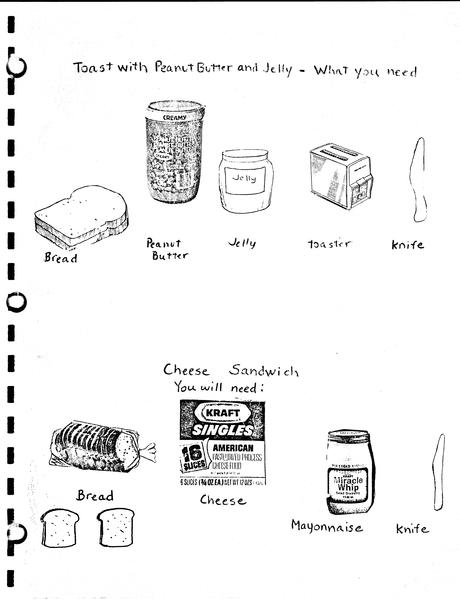 Toast with Peanut Butter and Jelly - What you need
CREAMY
Jelly
Bread
Peanut
Butter
Jelly
toaster
knife
Cheese Sandwich
You will need:
KRAFT
SINGLES
16
SLICES
AMERICAN
PASTEURIZED PROCESS
CHEESE FOOD
Miracle
Whip
Bread
Cheese
Mayonnaise
knife